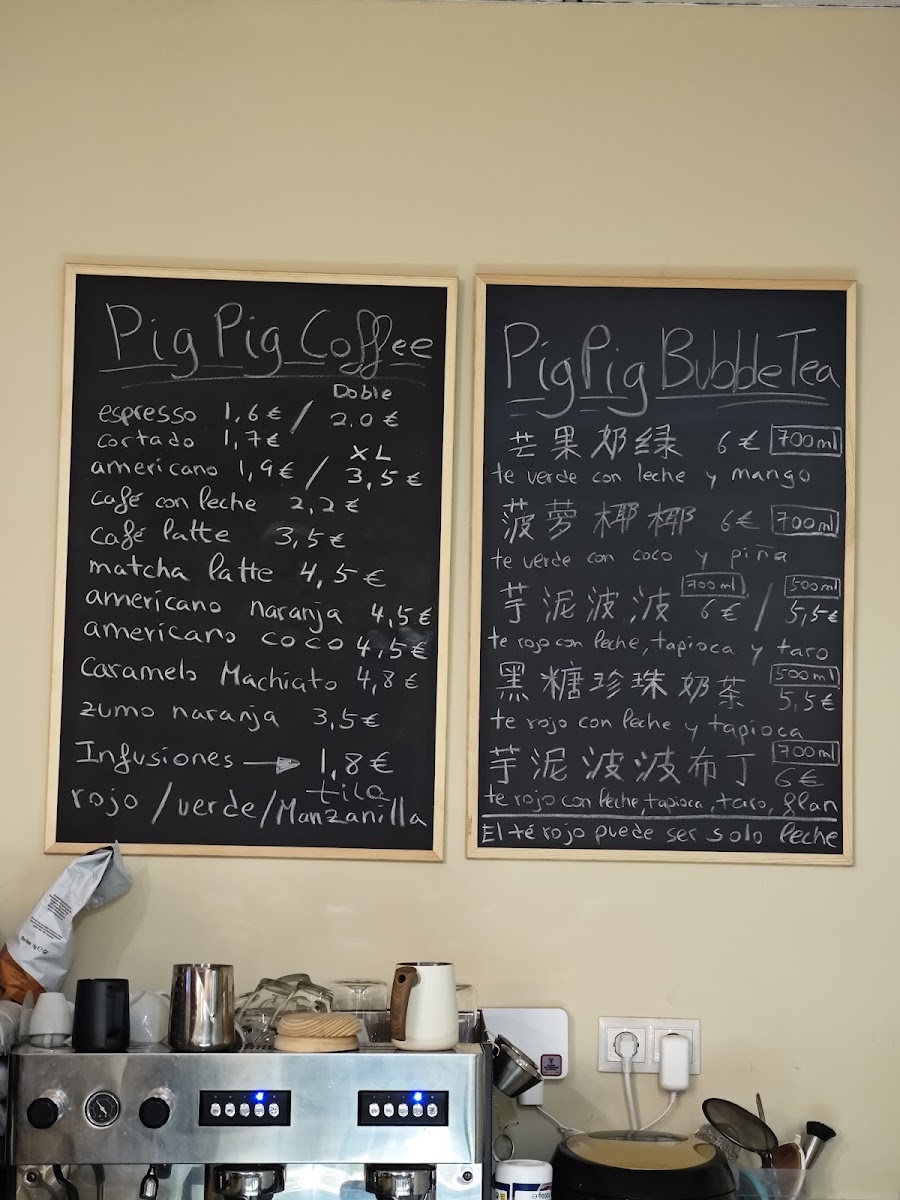 Pig Pig Coffee
Doble
espresso 1,6€ / 2,0€
cortado 1,7€
XL
americano 1,9€ / 3,5€
café con leche 2,2€
café latte 3,5€
matcha latte 4,5€
americano naranja 4,5€
americano coco 4,5€
Caramelo Machiato 4,8€
zumo naranja 3,5€
Infusiones → 1,8€
tila
rojo /verde/Manzanilla
PigPig BubbleTea
芒果奶绿 6€ 700ml
te verde con leche y mango
菠萝椰椰 6€ 700ml
te verde con coco y piña
700ml 500ml
芋泥波波 6€ / 5,5€
te rojo con leche, tapioca y taro
500ml
黑糖珍珠奶茶 5,5€
te rojo con leche y tapioca
700ml
芋泥波波布丁 6€
te rojo con leche, tapioca, taro, flan
El té rojo puede ser solo leche